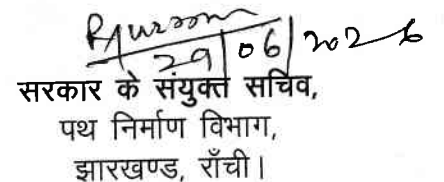 29/06/2026
सरकार के संयुक्त सचिव,
पथ निर्माण विभाग,
झारखण्ड, राँची।